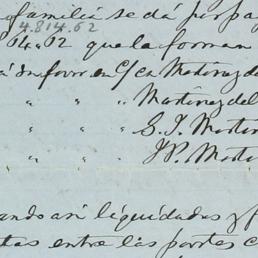 familia se dá por pa
4.814.62
64,,62 que la forman
á Dn favor en C/ca Martinez de
" " " Martinez del
" " " S. J. Martin
" " " J. P. Mart
ando asi liquidadas y f
tas entre las partes c